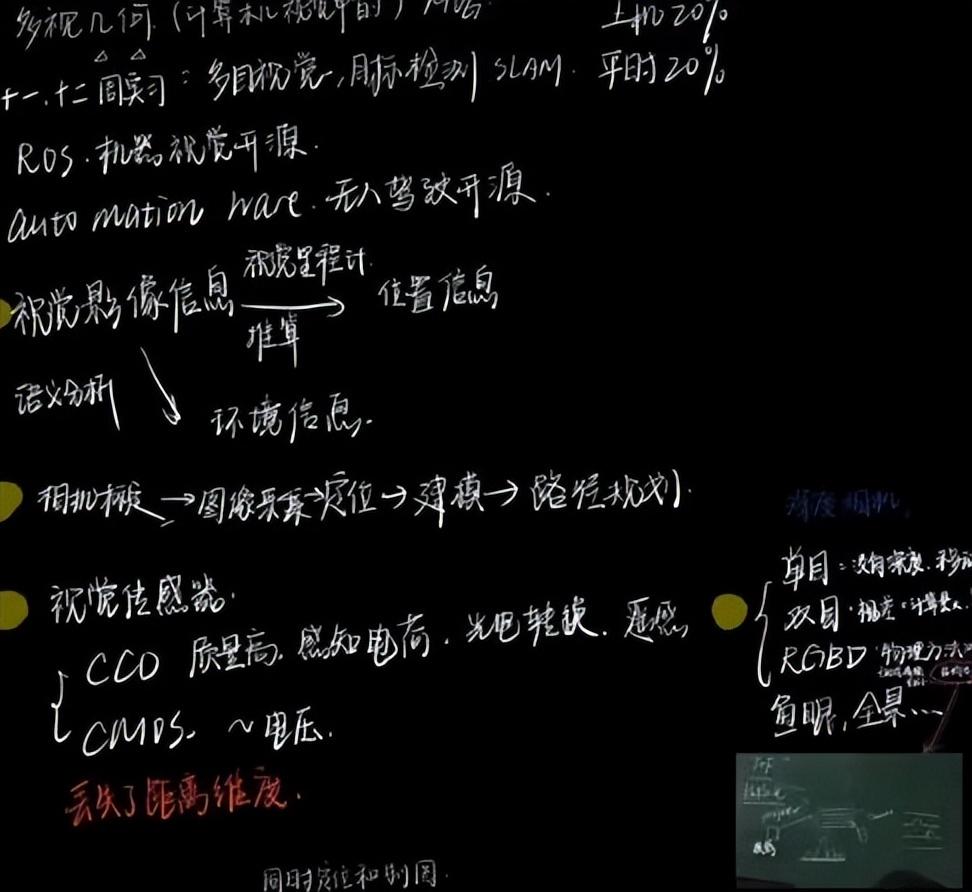 多视几何.(计算机视觉中的)
上机20%
十一.十二周实习:多目视觉,目标检测 SLAM.
平时20%
ROS.机器视觉开源.
automation ware.无人驾驶开源.
视觉影像信息
视觉里程计.
推算
位置信息
语义分析
环境信息.
→图像采集→定位→建模→路径规划.
深度相机.
视觉传感器.
CCD 质量高.感知电荷.光电转换.遥感
CMOS. ~电压.
丢失了距离维度.
单目:没有深度.
双目.视差.计算量大.
RGBD 物理方法
鱼眼,全景...
同时定位和制图.